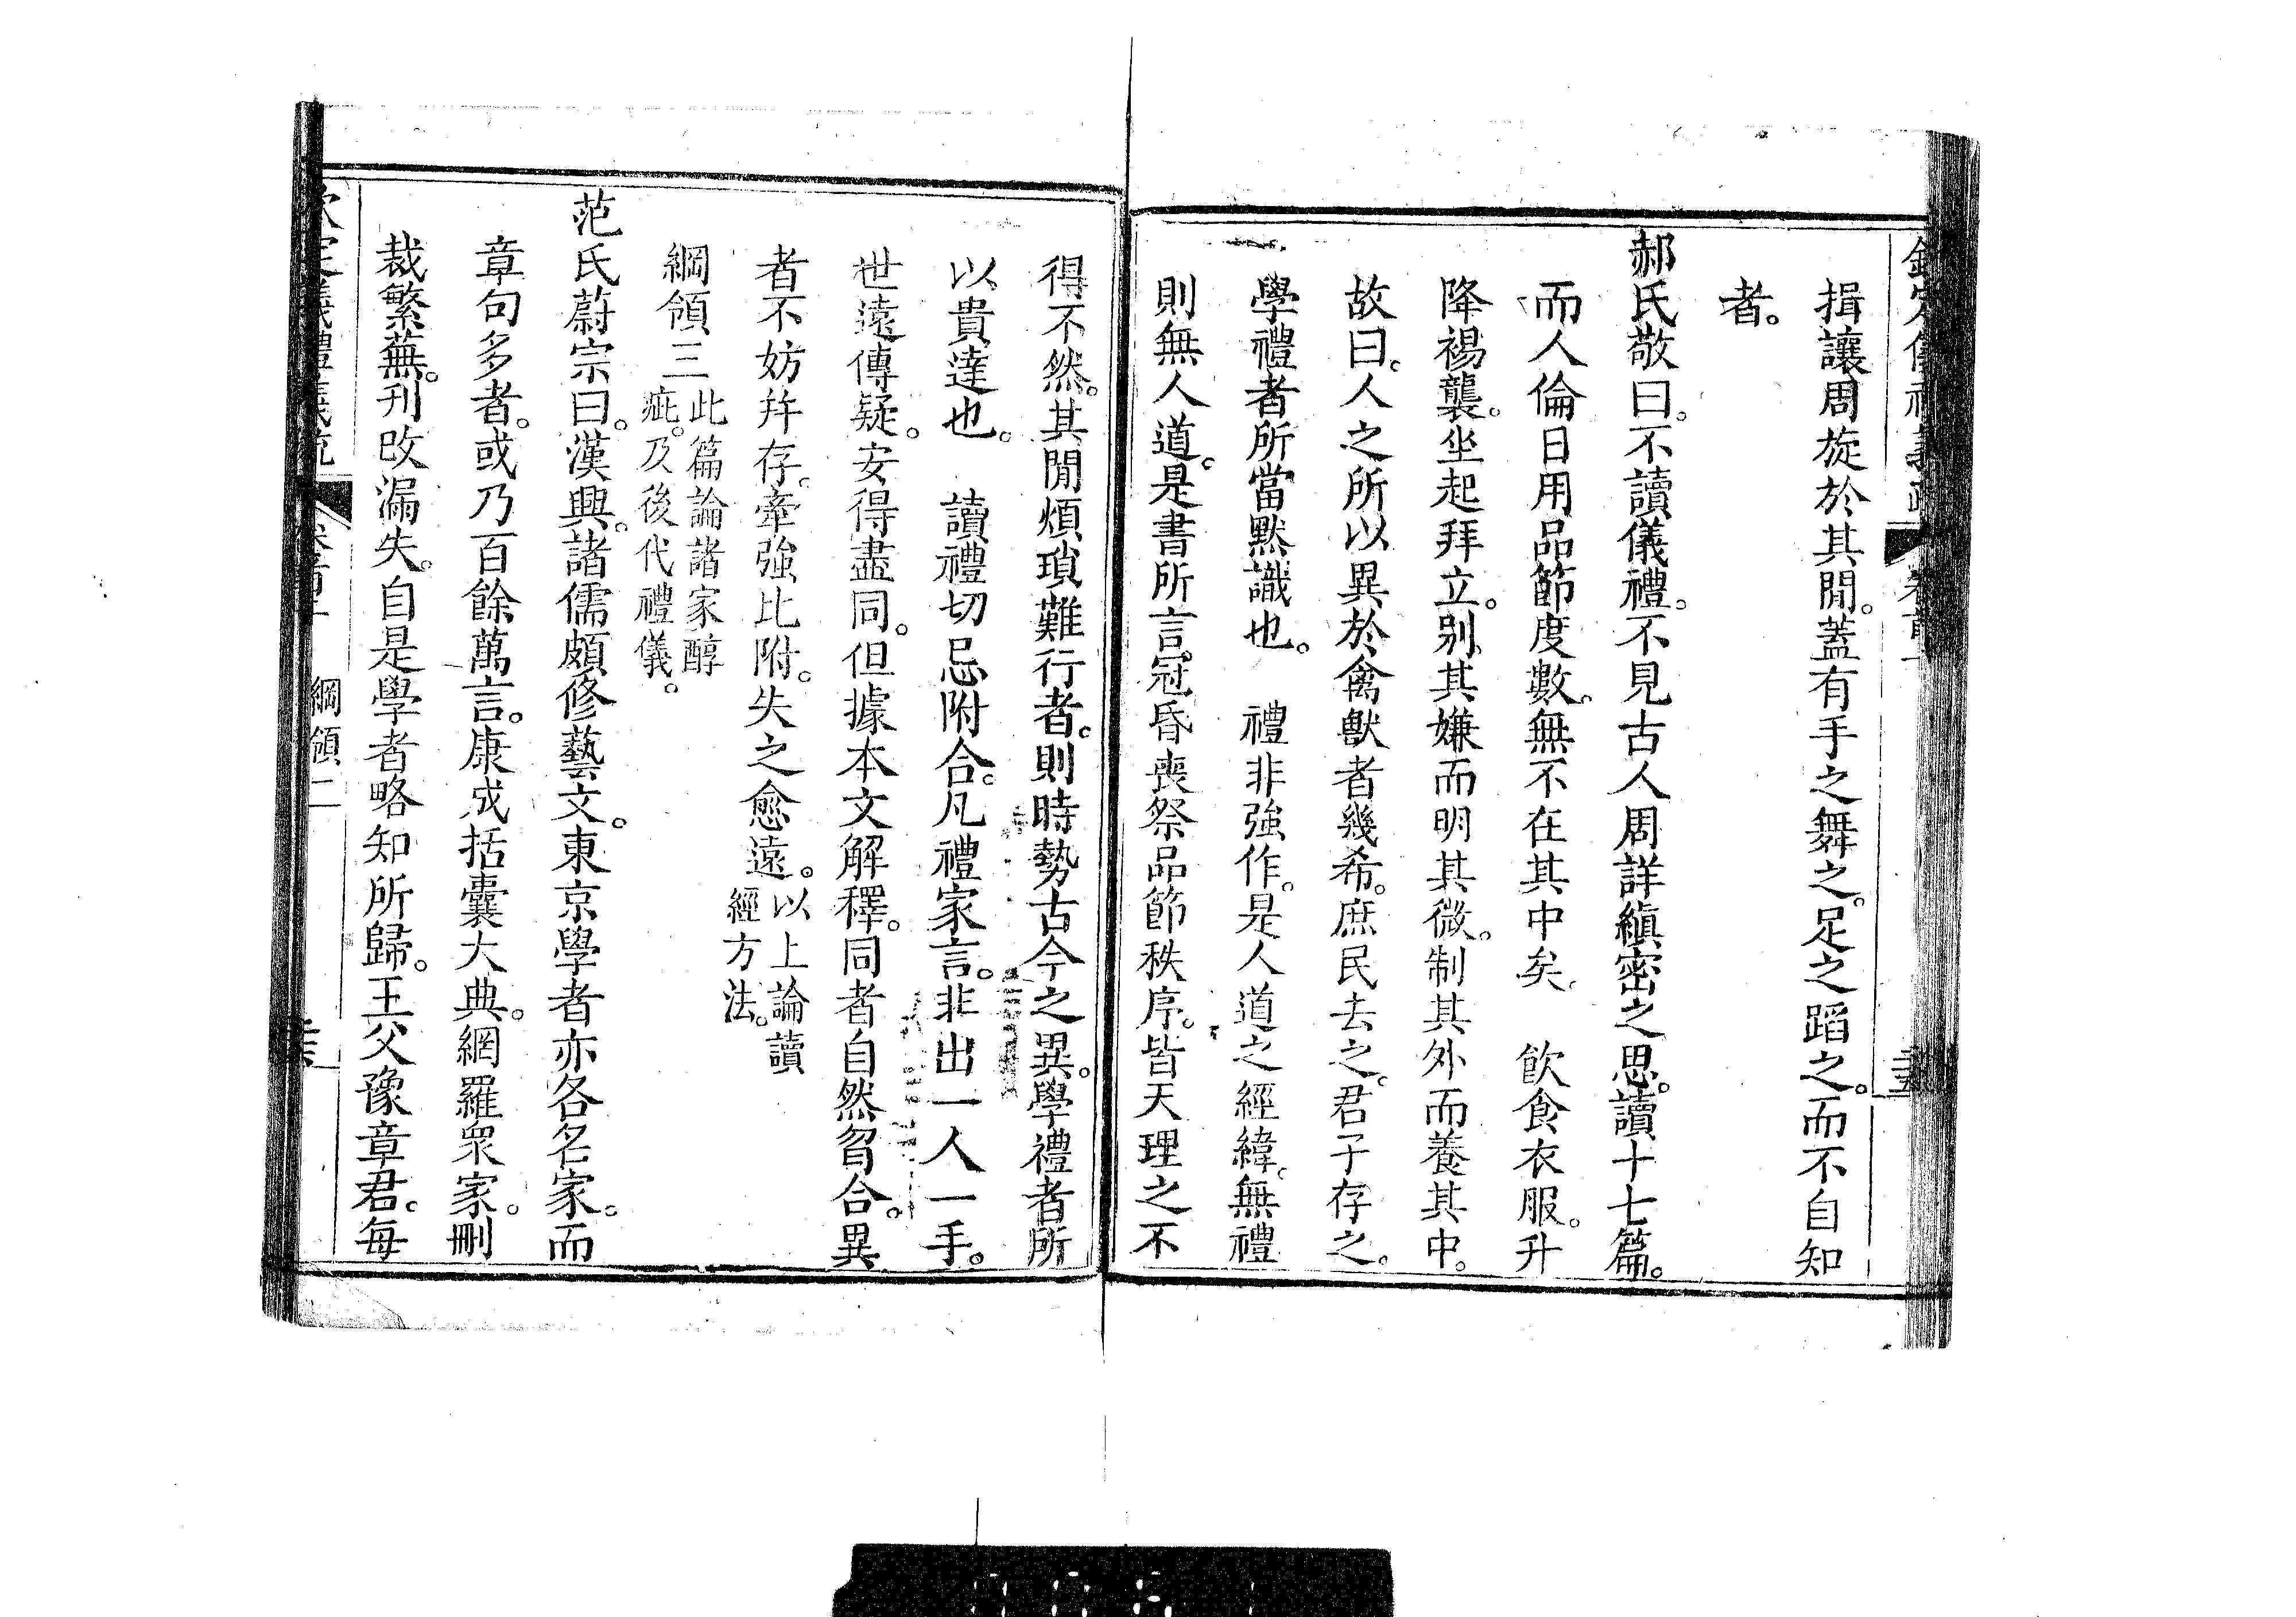 揖讓周旋於其閒。蓋有手之舞之。足之蹈之。而不自知
者。
郝氏敬曰。不讀儀禮。不見古人周詳縝密之思。讀十七篇。
而人倫日用品節度數。無不在其中矣。　飲食衣服。升
降裼襲。坐起拜立。别其嫌而明其微。制其外而養其中。
故曰。人之所以異於禽獸者幾希。庶民去之。君子存之。
學禮者所當默識也。　禮非強作。是人道之經緯。無禮
則無人道。是書所言。冠昏喪祭品節秩序。皆天理之不
得不然。其閒煩瑣難行者。則時勢古今之異。學禮者所
以貴達也。　讀禮切忌附合。凡禮家言。非出一人一手。
世遠傳疑。安得盡同。但據本文解釋。同者自然脗合。異
者不妨幷存。牽強比附。失之愈遠。以上論讀
經方法。
綱領三此篇論諸家醇
疵。及後代禮儀。
范氏蔚宗曰。漢興。諸儒頗修藝文。東京學者亦各名家。而
章句多者。或乃百餘萬言。康成括囊大典。網羅眾家。刪
裁繁蕪。刋改漏失。自是學者略知所歸。王父豫章君。每
欽定儀禮義疏
綱領二